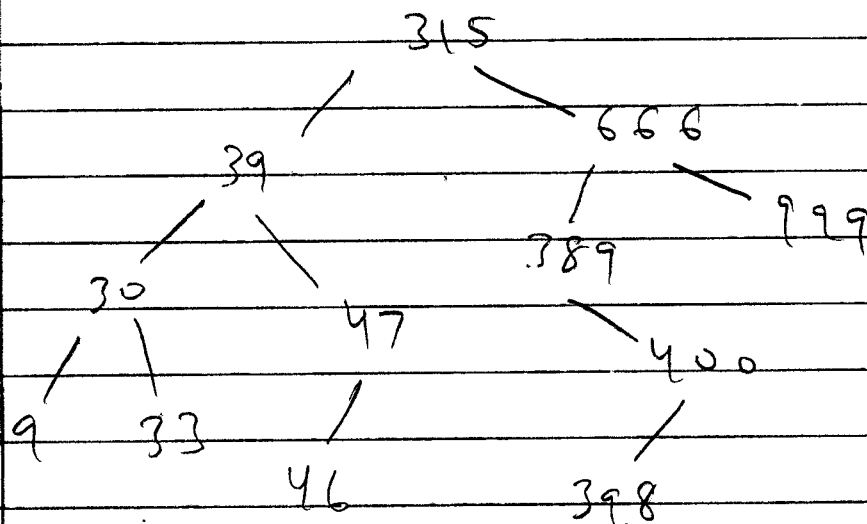 315
666
39
999
389
30
47
400
9 33
46 398